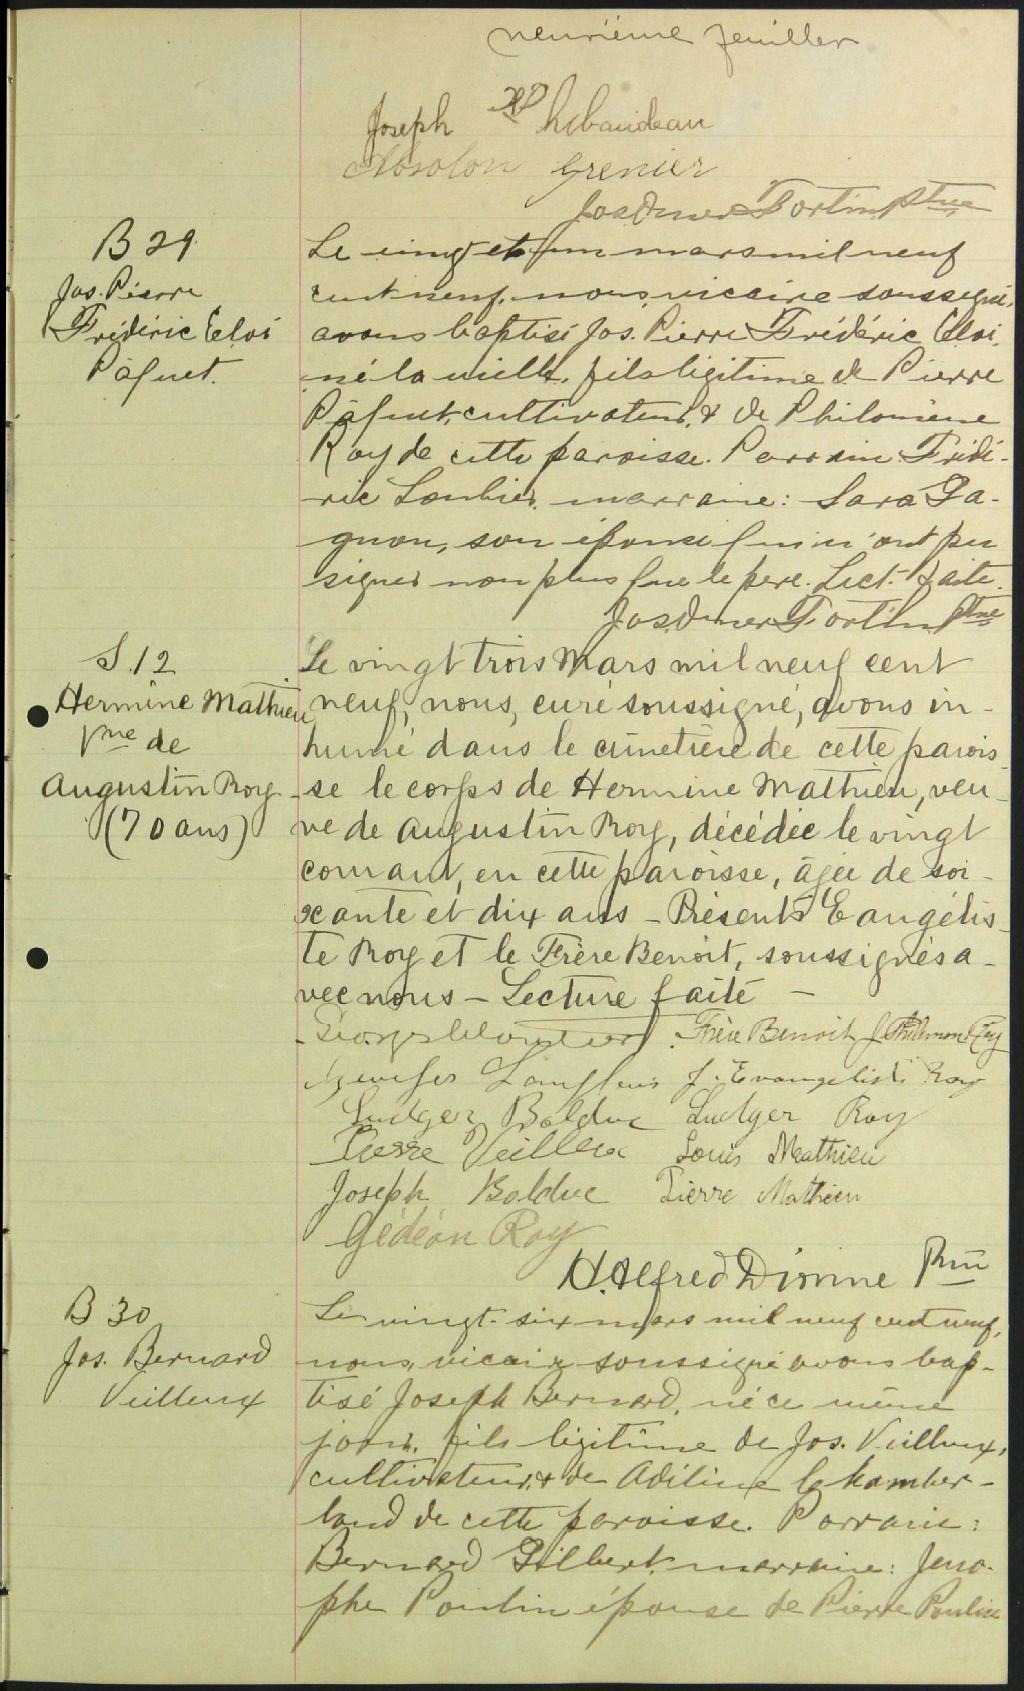 neuvième feuillet
Joseph Thibaudeau
Absolon Grenier
Jos Omer Fortin Ptre
B 29
Jos. Pierre
Frédéric Eloi
Pâquet.
Le vingt et un mars mil neuf
cent neuf, nous, vicaire soussigné,
avons baptisé Jos. Pierre Frédéric Eloi,
né la veille, fils légitime de Pierre
Pâquet, cultivateur, & de Philomène
Roy de cette paroisse. Parrain Frédé-
ric Loubier, marraine: Sara Ga-
gnon, son épouse qui n'ont pu
signer non plus que le père. Lect. faite.
Jos Omer Fortin Ptre
S. 12
Hermine Mathieu
Vve de
Augustin Roy
(70 ans)
Le vingt trois Mars mil neuf cent
neuf, nous, curé soussigné, avons in-
humé dans le cimetière de cette parois-
se le corps de Hermine Mathieu, veu-
ve de Augustin Roy, décédée le vingt
courant, en cette paroisse, âgée de soi-
xante et dix ans - Présents Evangélis-
te Roy et le Frère Benoit, soussignés a-
vec nous - Lecture faite -
Georges Frère Benoit J. Philémon Roy
J. Evangeliste Roy
Ludger Bolduc Ludger Roy
Pierre Veilleux Louis Mathieu
Joseph Bolduc Pierre Mathieu
Gédéon Roy
H. Alfred Dionne Ptre
B 30
Jos. Bernard
Veilleux
Le vingt-six mars mil neuf cent neuf,
nous, vicaire soussigné avons bap-
tisé Joseph Bernard, né ce même
jour, fils légitime de Jos. Veilleux,
cultivateur, & de Adéline Chamber-
land de cette paroisse. Parrain:
Bernard Gilbert, marraine:
Poulin épouse de Pierre Poulin